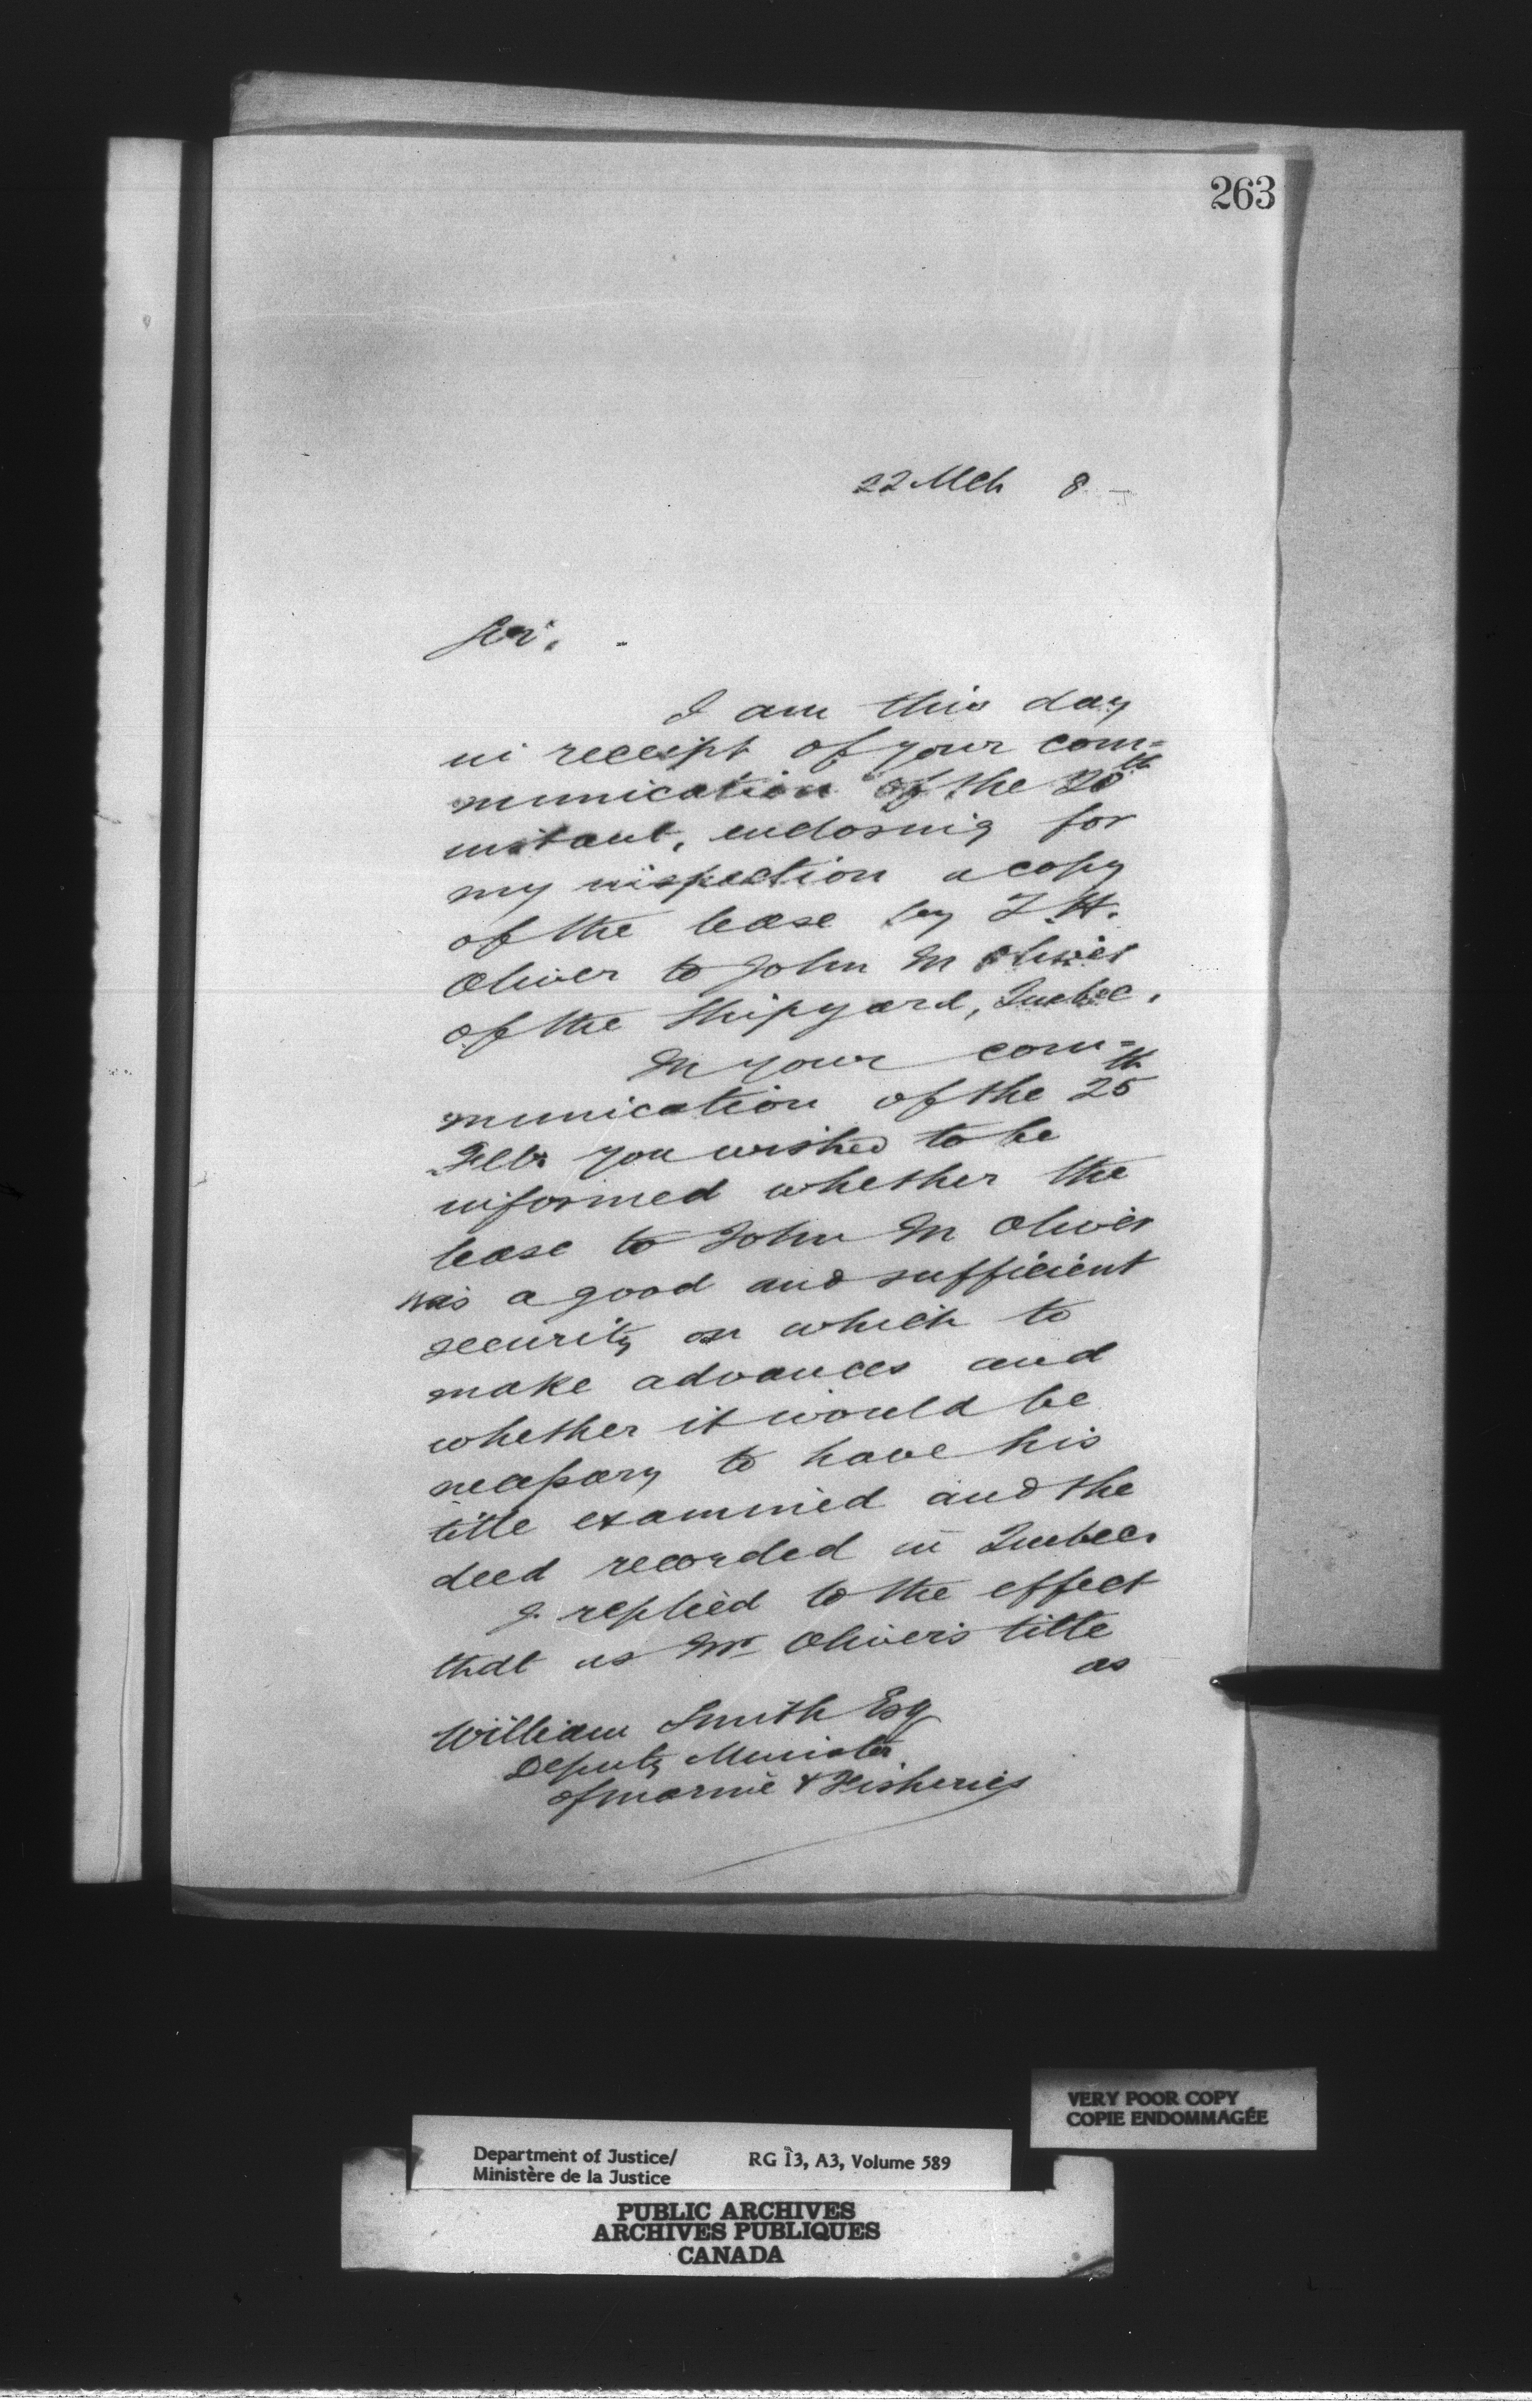 263
22 Mch 8
Sir,
I am this day
in receipt of your com=
munication of the 20th
instant, enclosing for
my inspection a copy
of the lease by T. H.
Oliver to John M Oliver
of the Shipyard, Quebec.
In your com=
munication of the 25th
Feb. you wished to be
informed whether the
lease to John M Oliver
was a good and sufficient
security on which to
make advances and
whether it would be
necessary to have his
title examined and the
deed recorded in Quebec.
I replied to the effect
that as Mr Oliver's title
as
William Smith Esq
Deputy Minister
of Marine & Fisheries
VERY POOR COPY
COPIE ENDOMMAGÉE
Department of Justice/ RG 13, A3, Volume 589
Ministère de la Justice
PUBLIC ARCHIVES
ARCHIVES PUBLIQUES
CANADA